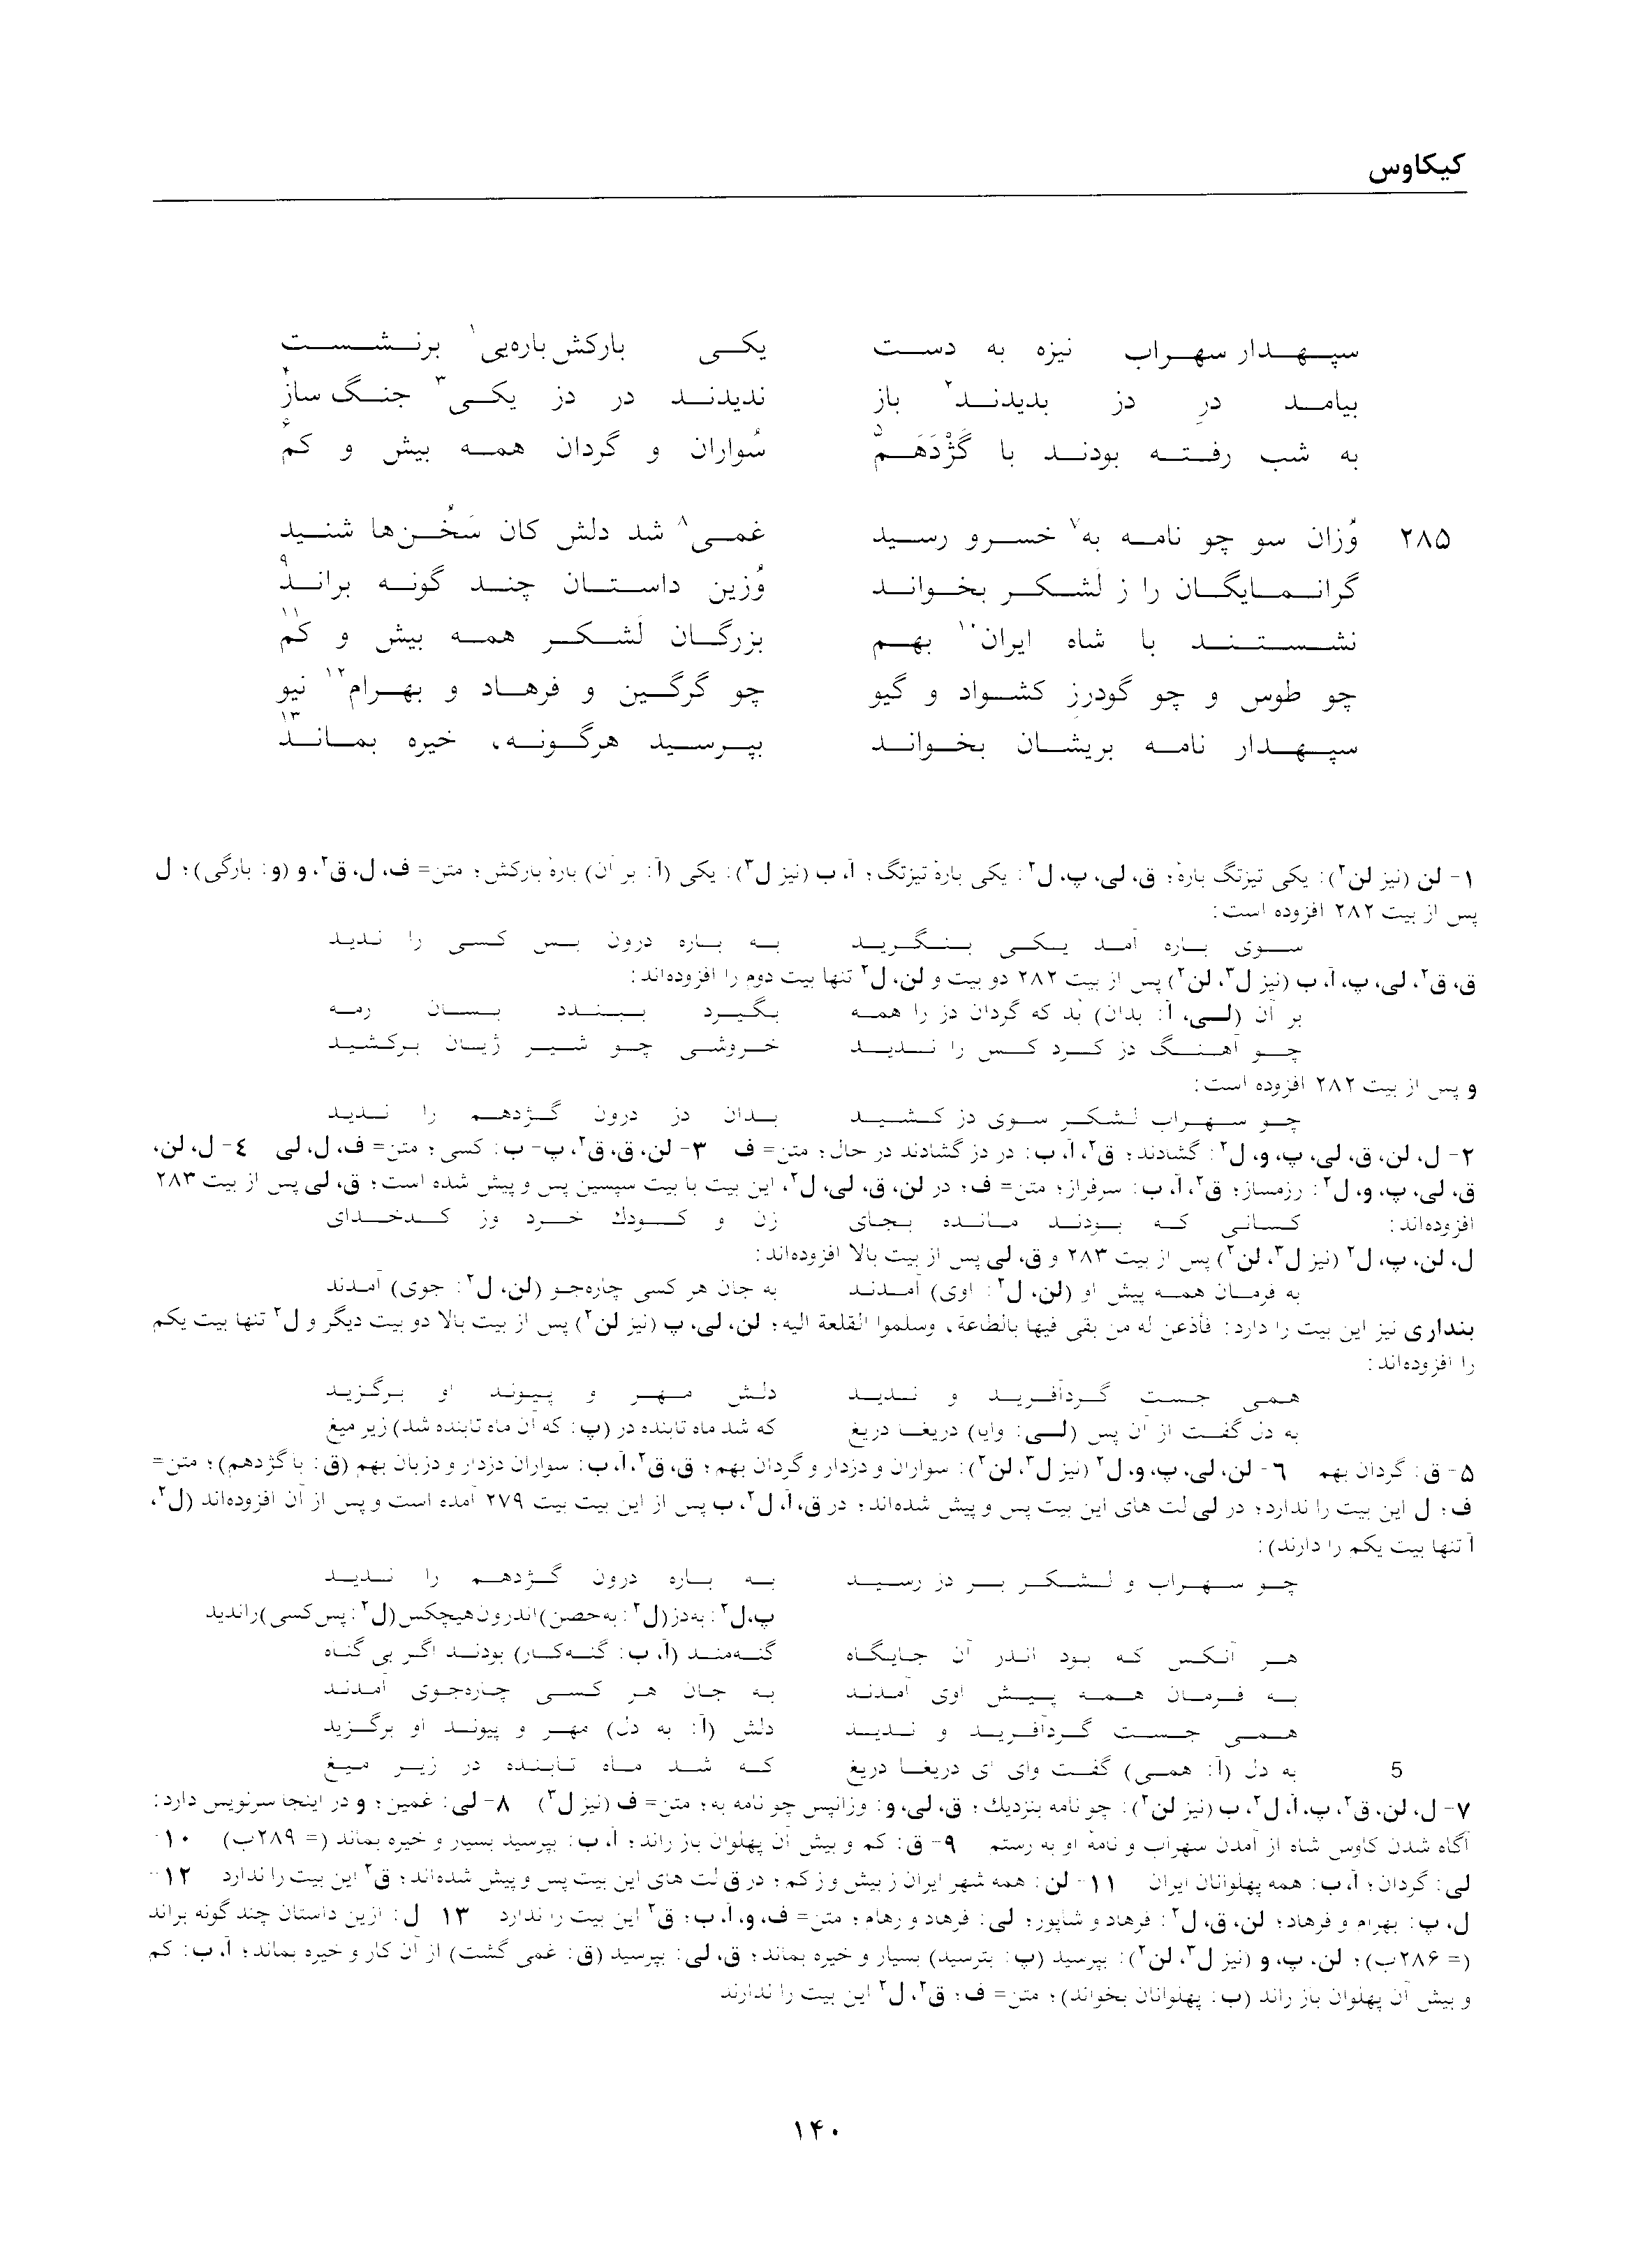 کیکاوس
سپهدار سهراب نیزه به دست یکی بارکش باره‌یی۱ برنشست
بیامد درِ دز بدیدند۲ باز ندیدند در دز یکی۳ جنگ ساز۴
به شب رفته بودند با گَژْدَهَم۵ سُواران و گردان همه بیش و کم۶
۲۸۵ وُزان سو چو نامه به۷ خسرو رسید غمی۸ شد دلش کان سَخُن‌ها شنید
گرانمایگان را ز لشکر بخواند وُزین داستان چند گونه براند۹
نشستند با شاه ایران۱۰ بهم بزرگان لشکر همه بیش و کم۱۱
چو طوس و چو گودرزِ کشواد و گیو چو گرگین و فرهاد و بهرام۱۲ نیو
سپهدار نامه بریشان بخواند بپرسید هرگونه، خیره بماند۱۳
۱- لن (نیز لن۲): یکی تیزتگ بارهٔ؛ ق، لی، پ، ل۲: یکی بارهٔ تیزتگ؛ آ، ب (نیز ل۳): یکی (آ: بر آن) بارهٔ بارکش؛ متن= ف، ل، ق۲، و (و: بارگی)؛ ل
پس از بیت ۲۸۲ افزوده است:
سوی باره آمد یکی بنگرید به باره درون بس کسی را ندید
ق، ق۲، لی، پ، آ، ب (نیز ل۳، لن۲) پس از بیت ۲۸۲ دو بیت و لن، ل۲ تنها بیت دوم را افزوده‌اند:
بر آن (لی، آ: بدان) بُد که گردان دز را همه بگیرد ببندد بسان رمه
چو آهنگ دز کرد کس را ندید خروشی چو شیر ژیان برکشید
و پس از بیت ۲۸۲ افزوده است:
چو سهراب لشکر سوی دز کشید بدان دز درون گژدهم را ندید
۲- ل، لن، ق، لی، پ، و، ل۲: گشادند؛ ق۲، آ، ب: در دز گشادند در حال؛ متن= ف ۳- لن، ق، ق۲، پ- ب: کسی؛ متن= ف، ل، لی ٤- ل، لن،
ق، لی، پ، و، ل۲: رزمساز؛ ق۲، آ، ب: سرفراز؛ متن= ف؛ در لن، ق، لی، ل۲، این بیت با بیت سپسین پس و پیش شده است؛ ق، لی پس از بیت ۲۸۳
افزوده‌اند: کسانی که بودند مانده بجای زن و کودك خرد وز کدخدای
ل، لن، پ، ل۲ (نیز ل۳، لن۲) پس از بیت ۲۸۳ و ق، لی پس از بیت بالا افزوده‌اند:
به فرمان همه پیش او (لن، ل۲: اوی) آمدند به جان هر کسی چاره‌جو (لن، ل۲: جوی) آمدند
بنداری نیز این بیت را دارد: فأذعن له من بقی فیها بالطاعة، وسلموا القلعة الیه؛ لن، لی، پ (نیز لن۲) پس از بیت بالا دو بیت دیگر و ل۲ تنها بیت یکم
را افزوده‌اند:
همی جست گردآفرید و ندید دلش مهر و پیوند او برگزید
به دل گفت از آن پس (لی: وایا) دریغا دریغ که شد ماه تابنده در (پ: که آن ماه تابنده شد) زیر میغ
۵- ق: گردان بهم ٦- لن، لی، پ، و، ل۲ (نیز ل۳، لن۲): سواران و دزدار و گردان بهم؛ ق، ق۲، آ، ب: سواران دزدار و دزبان بهم (ق: با گژدهم)؛ متن=
ف؛ ل این بیت را ندارد؛ در لی لت های این بیت پس و پیش شده‌اند؛ در ق، آ، ل۲، ب پس از این بیت بیت ۲۷۹ آمده است و پس از آن افزوده‌اند (ل۲،
آ تنها بیت یکم را دارند):
چو سهراب و لشکر بر دز رسید به باره درون گژدهم را ندید
پ، ل۲: به دز (ل۲: به حصن) اندرون هیچکس (ل۲: پس کسی) را ندید
هر آنکس که بود اندر آن جایگاه گنه‌مند (آ، ب: گنه‌کار) بودند اگر بی گناه
به فرمان همه پیش اوی آمدند به جان هر کسی چاره‌جوی آمدند
همی جست گردآفرید و ندید دلش (آ: به دل) مهر و پیوند او برگزید
5 به دل (آ: همی) گفت وای ای دریغا دریغ که شد ماه تابنده در زیر میغ
۷- ل، لن، ق۲، پ، آ، ل۲، ب (نیز لن۲): چو نامه بنزدیك؛ ق، لی، و: وزانپس چو نامه به؛ متن= ف (نیز ل۳) ۸- لی: غمین؛ و در اینجا سرنویس دارد:
آگاه شدن کاوس شاه از آمدن سهراب و نامهٔ او به رستم ۹- ق: کم و بیش آن پهلوان باز راند؛ آ، ب: بپرسید بسیار و خیره بماند (= ۲۸۹ب) ۱۰-
لی: گردان؛ آ، ب: همه پهلوانان ایران ۱۱- لن: همه شهر ایران ز بیش و ز کم؛ در ق لت های این بیت پس و پیش شده‌اند؛ ق۲ این بیت را ندارد ۱۲-
ل، پ: بهرام و فرهاد؛ لن، ق، ل۲: فرهاد و شاپور؛ لی: فرهاد و رهام؛ متن= ف، و، آ، ب؛ ق۲ این بیت را ندارد ۱۳ ل: ازین داستان چند گونه براند
(= ۲۸۶ب)؛ لن، پ، و (نیز ل۳، لن۲): بپرسید (پ: بترسید) بسیار و خیره بماند؛ ق، لی: بپرسید (ق: غمی گشت) از آن کار و خیره بماند؛ آ، ب: کم
و بیش آن پهلوان باز راند (ب: پهلوانان بخواند)؛ متن= ف؛ ق۲، ل۲ این بیت را ندارند
۱۴۰